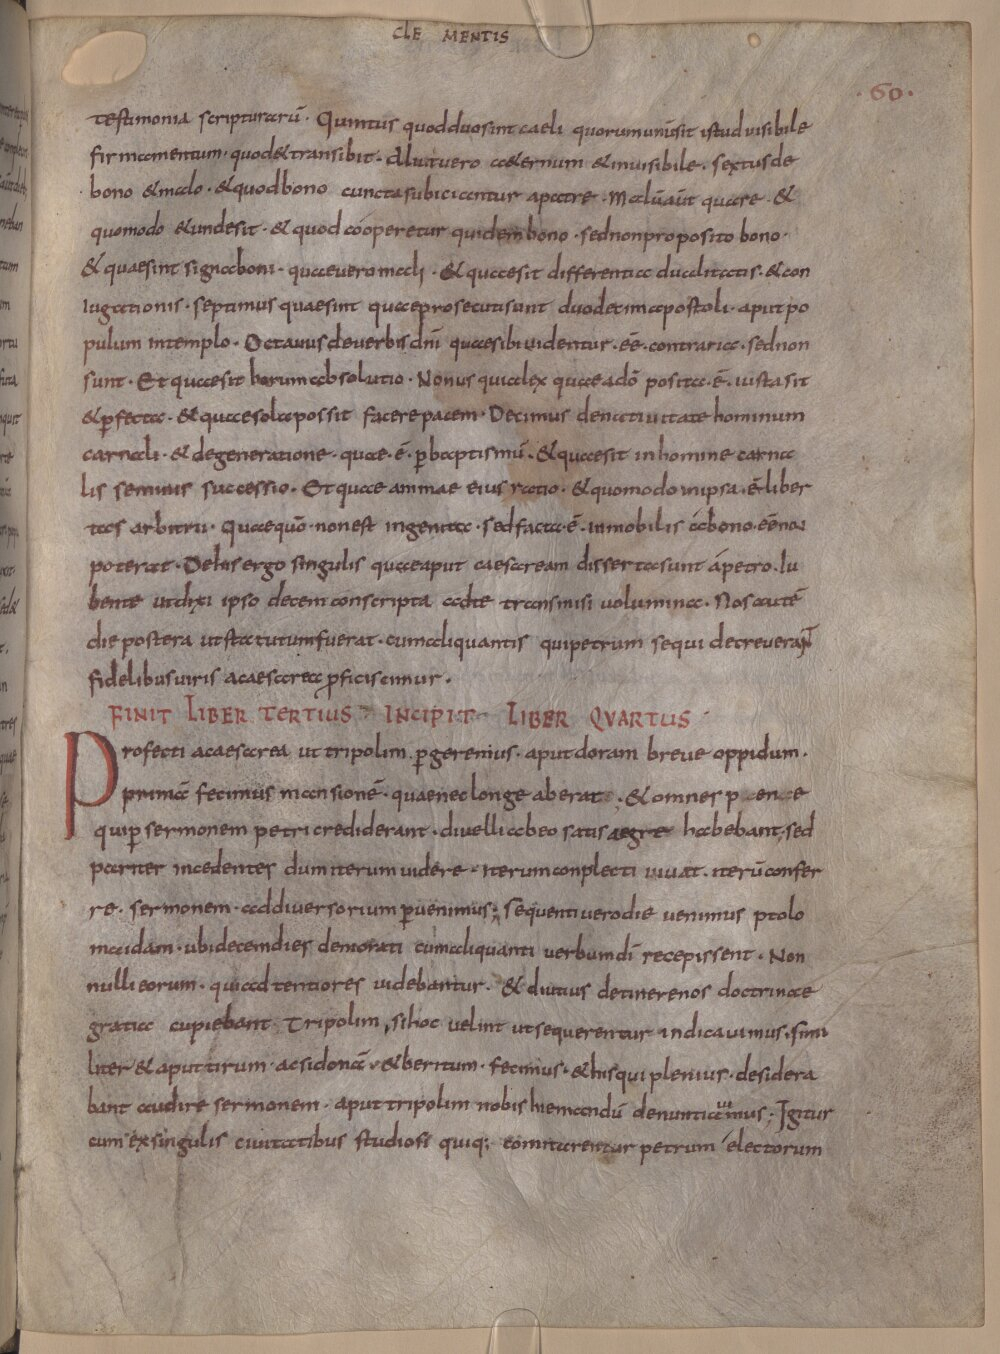 CLEMENTIS
·60·
testimonia scripturarū · Quintus quod duo sint caeli quorum unus sit istud uisibile
firmamentum · quod & transibit · Aliut uero aeternum & inuisibile · sextus de
bono & malo · & quod bono cuncta subiciantur a patre · Malū aūt quare · &
quomodo & unde sit · & quod cooperetur quidem bono · sed non proposito bono ·
& quae sint signa boni · quae uero mali · & quae sit differentia dualitatis · & con
iugationis · septimus quae sint quae prosecuti sunt duodecim apostoli · aput po
pulum in templo · Octauus de uerbis dn̄i quae sibi uidentur · ēē · contraria · sed non
sunt · Et quae sit horum absolutio · Nonus quia lex quae a dō posita · ē · iusta sit
& p̄fecta · & quae sola possit facere pacem · Decimus de natiuitate hominum
carnali · & de generatione · quae · ē · p̄ baptismū · & quae sit in homine carna
lis seminis successio · Et quae animae eius ratio · & quomodo in ipsa · ē · liber
tas arbitrii · Quae quō · non est ingenita · sed facta · ē · inmobilis a bono · ēē non
poterat · De his ergo singulis quae aput caesaream disserta sunt a petro · Iu
bente ut dixi ipso decem conscripta ad te transmisi uolumina · Nos autē
die postera ut statutum fuerat · cum aliquantis qui petrum sequi decreuerant
fidelibus uiris a caesarea p̄ficiscimur ·
FINIT LIBER TERTIUS INCIPIT LIBER QVARTUS
Profecti a caesarea ut tripolim p̄geremus · aput doram breue oppidum ·
primā fecimus mansionē · quae nec longe aberat · & omnes p en e
qui p̄ sermonem petri crediderant · diuelli ab eo satis aegre habebant; sed
pariter incedentes dum iterum uidere · iterum conplecti iuuat · iterū confer
re · sermonem · ad diuersorium p̄uenimus; sequenti uero die uenimus ptolo
maidam · ubi decem dies demorati cum aliquanti uerbum dī recepissent · Non
nulli eorum · qui adtentiores uidebantur · & diutius detinere nos doctrinae
gratia cupiebant Tripolim, si hoc uelint ut sequerentur indicauimus · simi
liter & aput tirum · ac sidonā · & beritum · fecimus · & his qui plenius · desidera
bant audire sermonem · aput tripolim nobis hiemandū denuntiauimus; Igitur
cum ex singulis ciuitatibus studiosi quiq; comitarentur petrum electorum